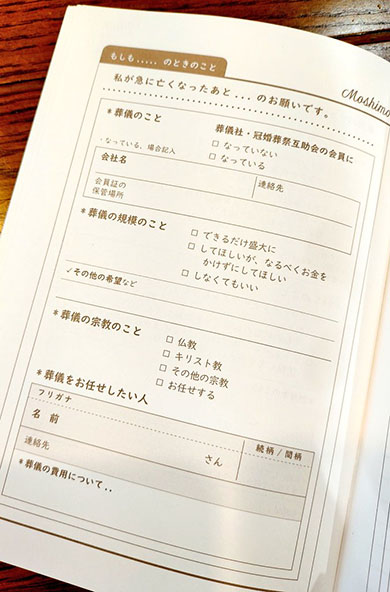 もしも..... のときのこと
Moshimo
私が急に亡くなったあと... のお願いです。
*葬儀のこと
葬儀社・冠婚葬祭互助会の会員に
□ なっていない
□ なっている
・なっている、場合記入
会社名
連絡先
会員証の
保管場所
*葬儀の規模のこと
□ できるだけ盛大に
□ してほしいが、なるべくお金を
かけずにしてほしい
□ しなくてもいい
✓その他の希望など
*葬儀の宗教のこと
□ 仏教
□ キリスト教
□ その他の宗教
□ お任せする
*葬儀をお任せしたい人
フリガナ
続柄 / 間柄
名 前
さん
連絡先
*葬儀の費用について..